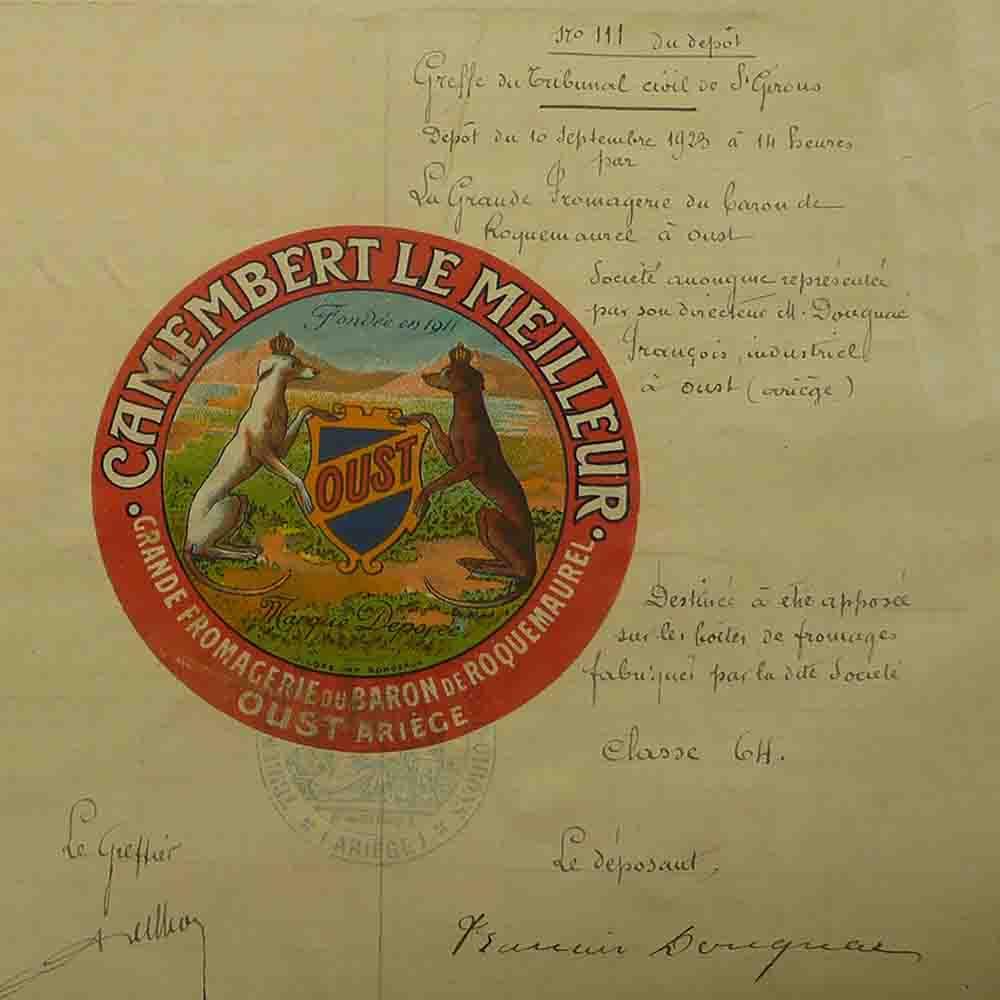 No 111 du depôt
Greffe du Tribunal civil de St Girons
Depôt du 10 Septembre 1923 à 14 heures
par
La Grande Fromagerie du baron de
Roquemaurel à Oust
Société anonyme représentée
par son directeur M. Dougnac
François, industriel
à Oust (ariège)
CAMEMBERT LE MEILLEUR
Fondée en 1911
OUST
Marque Déposée
BORDEAUX
GRANDE FROMAGERIE DU BARON DE ROQUEMAUREL
OUST ARIÈGE
Destinée à être apposée
sur les boites de fromages
fabriqués par la dite Société
Classe 64.
(ARIÈGE)
Le Greffier
Le déposant,
François Dougnac